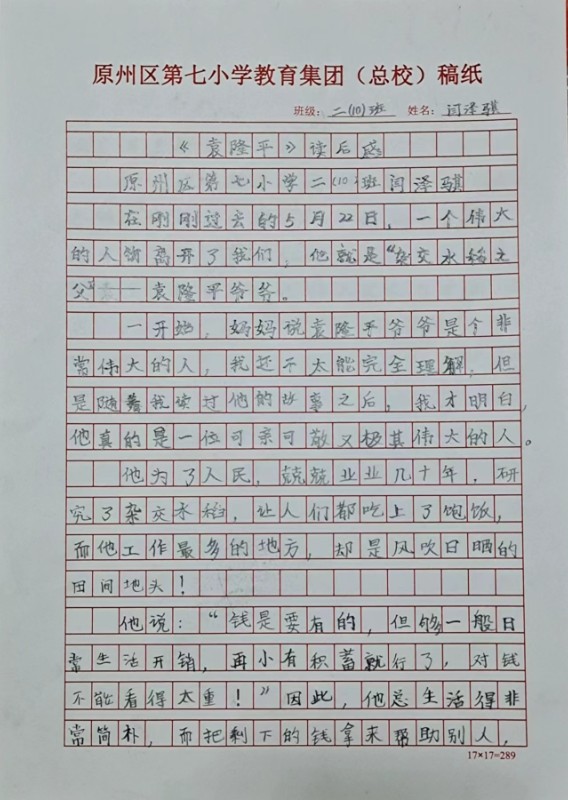 原州区第七小学教育集团（总校）稿纸
班级：二(10)班 姓名：闫泽骐
《袁隆平》读后感
原州区第七小学二(10)班闫泽骐
在刚刚过去的5月22日，一个伟大
的人物离开了我们，他就是“杂交水稻之
父”——袁隆平爷爷。
一开始，妈妈说袁隆平爷爷是个非
常伟大的人，我还不太能完全理解，但
是随着我读过他的故事之后，我才明白，
他真的是一位可亲可敬又极其伟大的人。
他为了人民，兢兢业业几十年，研
究了杂交水稻，让人们都吃上了饱饭，
而他工作最多的地方，却是风吹日晒的
田间地头！
他说：“钱是要有的，但够一般日
常生活开销，再小有积蓄就行了，对钱
不能看得太重！”因此，他总生活得非
常简朴，而把剩下的钱拿来帮助别人，
17×17=289